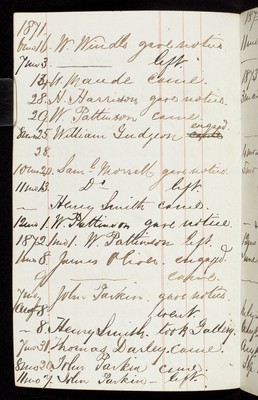 1871.
W. Windle gave notice
7 mo 3. — left.
13. W Maude came.
28. H. Harrison gave notice.
20 W. Pattinson came
25. William Gudgeon engagd.
28.
10 mo 20. Saml. Morrell gave notice
11 mo 13. Do. left.
— Henry Smith came.
12 mo 1. W. Pattinson gave notice.
1872 1 mo 1. W. Pattinson left.
8. James Oliver engagd.
9 — came.
John Parkin. gave notice.
went
— 8. Henry Smith. took
7 mo 31 Thomas Darley came.
8 mo 20 John Parkin came.
11 mo 7. John Parkin — left